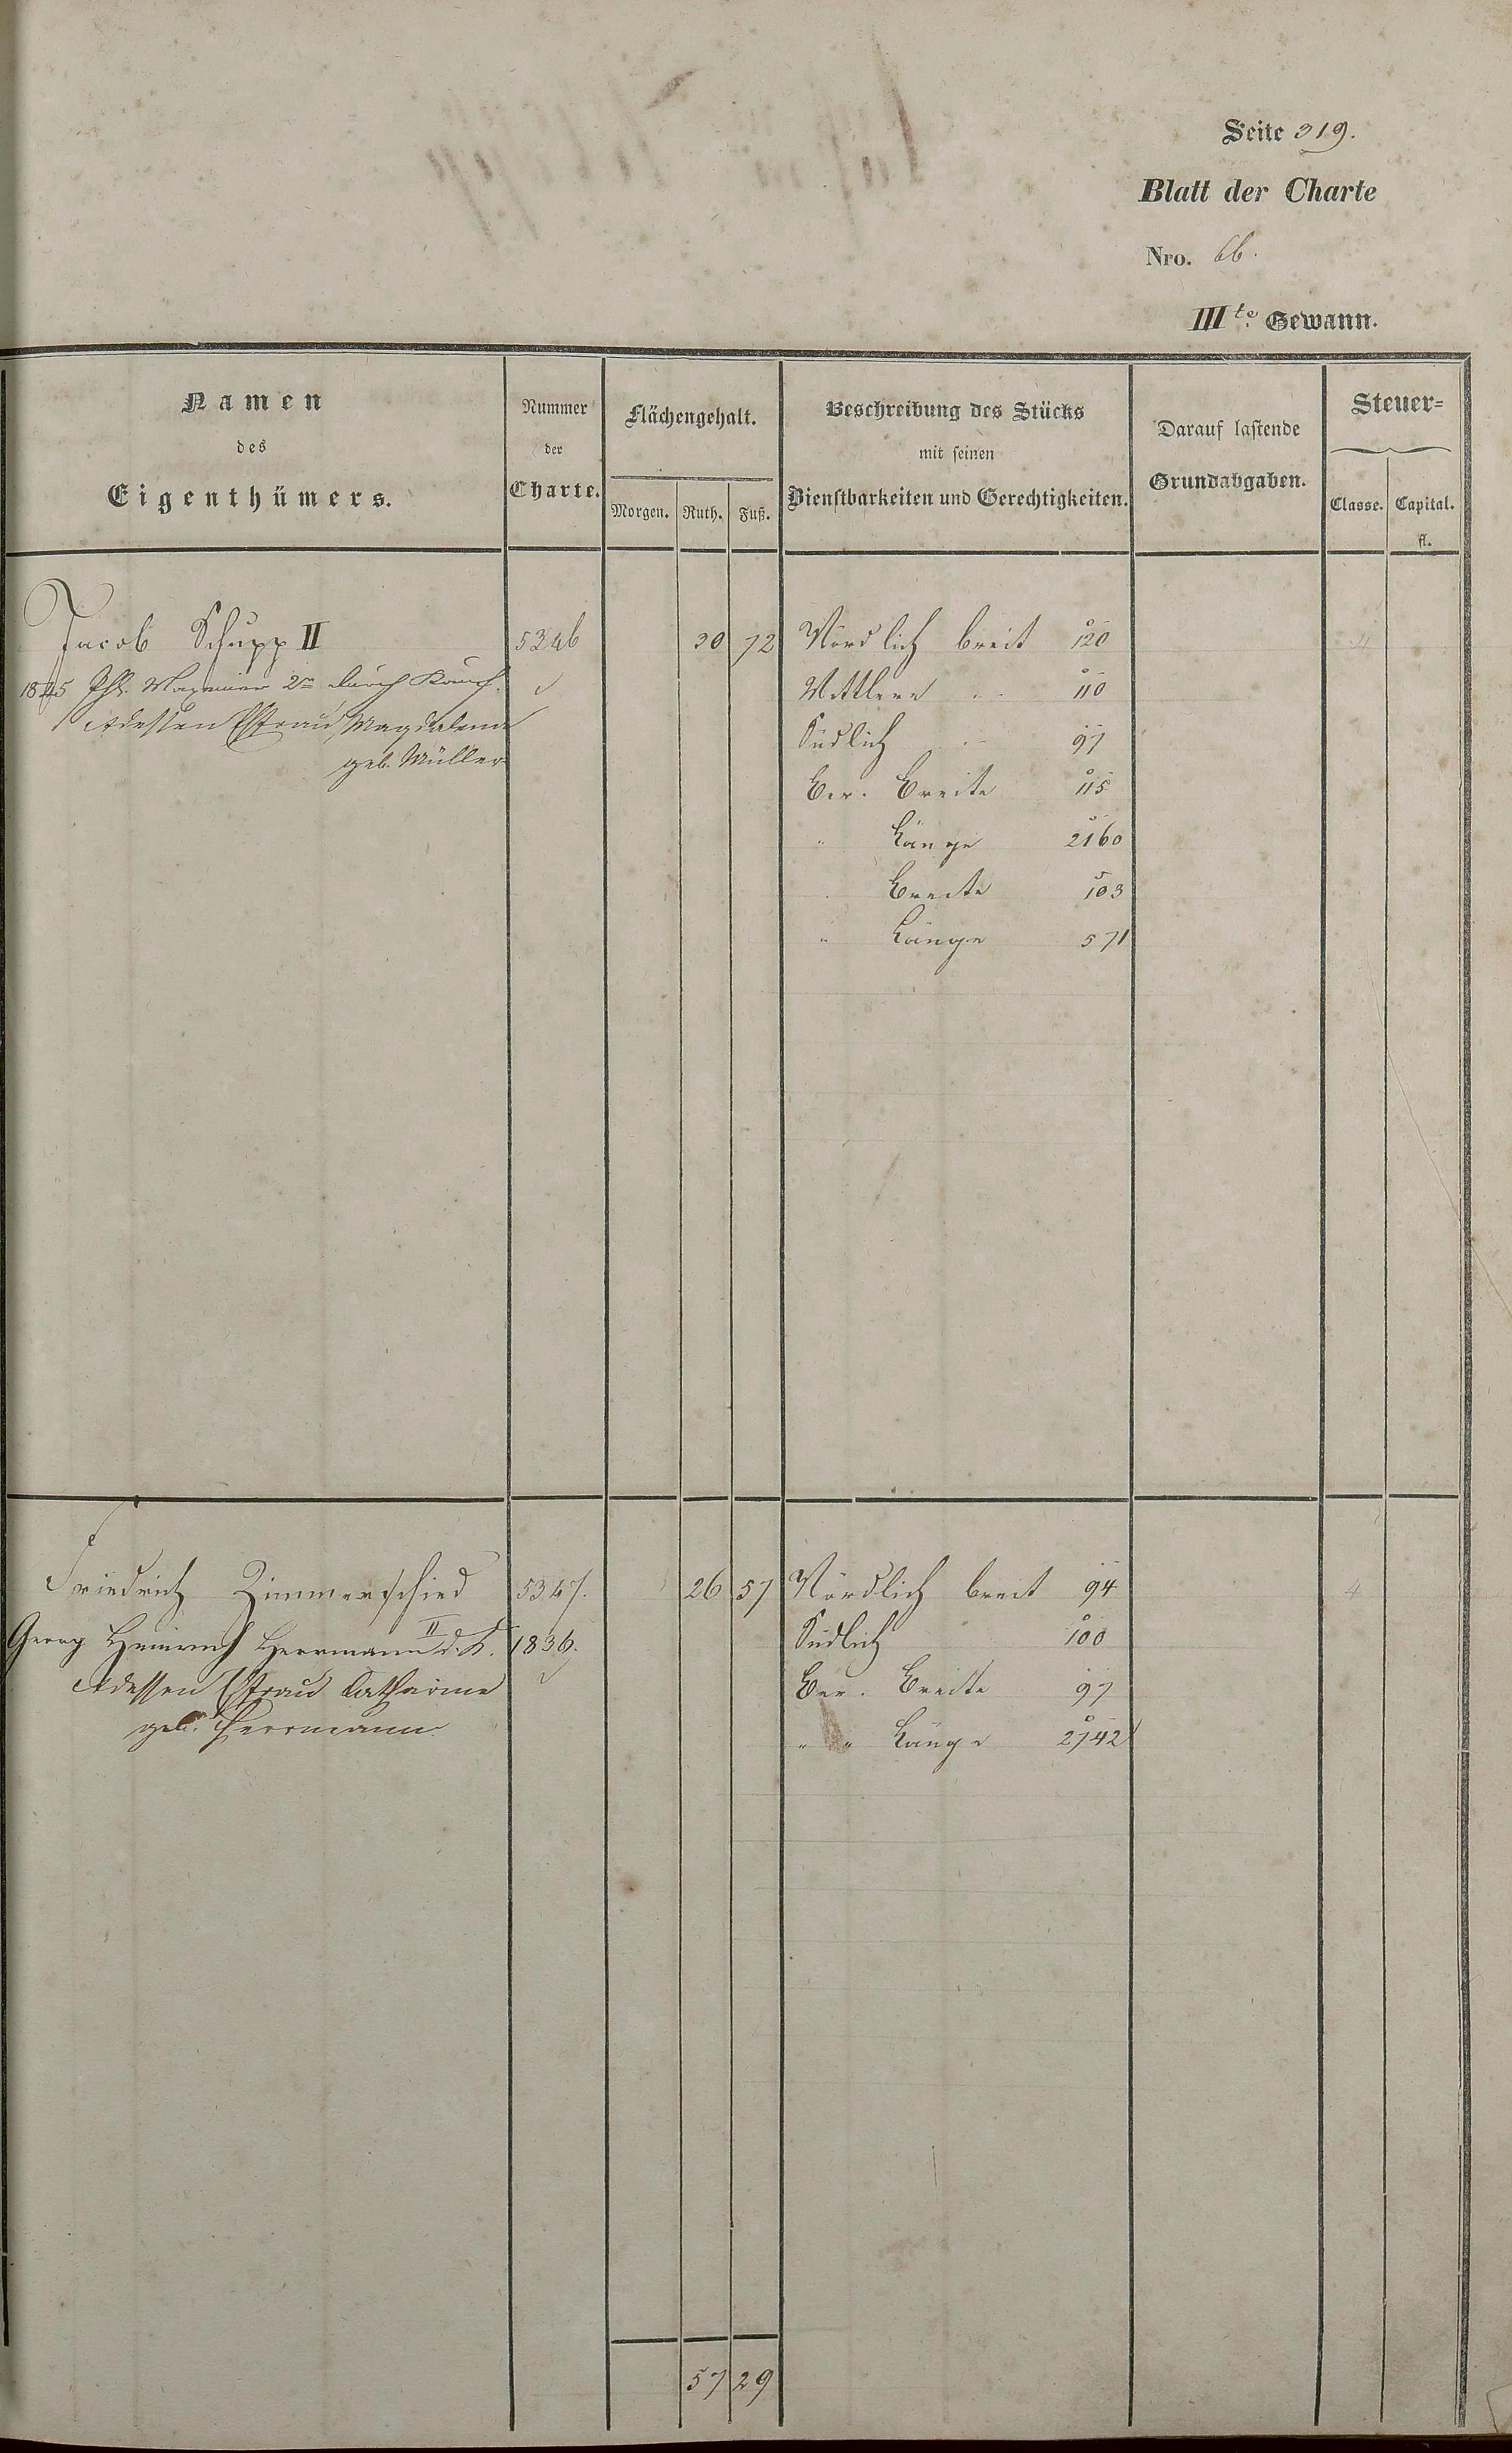 Seite 319.
Blatt der Charte
Nro. 66.
IIIte Gewann.
Namen
des
Eigenthümers.
Nummer
der
Charte.
Flächengehalt.
Morgen. Ruth. Fuß.
Beschreibung des Stücks
mit seinen
Dienstbarkeiten und Gerechtigkeiten.
Darauf lastende
Grundabgaben.
Steuer=
Classe. Capital.
fl.
Jacob Schupp II 5346 30 72 Nördlich breit 120 4
1845 2r durch Kauf.
Mittlere 110
&dessen Ehfrau Magdalena
Südlich 97
geb. Müller
Ber. Breite 115
" Länge 2160
Breite 103
" Länge 571
Friedrich Zimmerschied 5347. 26 57 Nördlich breit 94 4
Georg Heinrich Herrmann II d. K. 1836. Südlich 100
&dessen Ehfrau Catharine
Ber. Breite 97
geb. Herrmann
" " Länge 2742
57 29